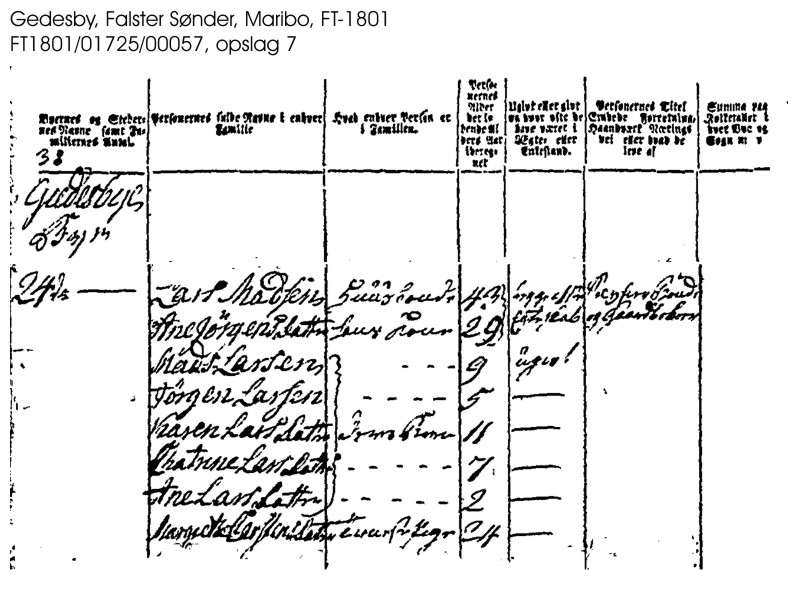 Gedesby, Falster Sønder, Maribo, FT-1801
FT1801/01725/00057, opslag 7
Byernes og Steder-
nes Navne samt Fa-
miliernes Antal.
Personernes fulde Navne i enhver
Familie
Hvad enhver Person er
i Familien.
Perso-
nernes
Alder
det lø-
bende Al-
ders Aar
ibereg-
net
Ugivt eller givt
og hvor ofte de
have været i
Ægte- eller
Enkestand.
Personernes Titel
Embede Forretning,
Haandværk Nærings
vei eller hvad de
leve af
Summa paa
Folketallet i
hver Bye og
Sogn
38
Giedesbye
24de
Lars Madsen Huusbonde 43
Ane Jörgens Datter hans Kone 29 og Gaardbeboer
Mads Larssen - - - 9 ugivt
Jörgen Larssen - - - - 5
Karen Lars Datter 11
Chatrine Lars Datter - - - - - 7
Ane Lars Datter - - - - - 2
Margrethe Datter 24